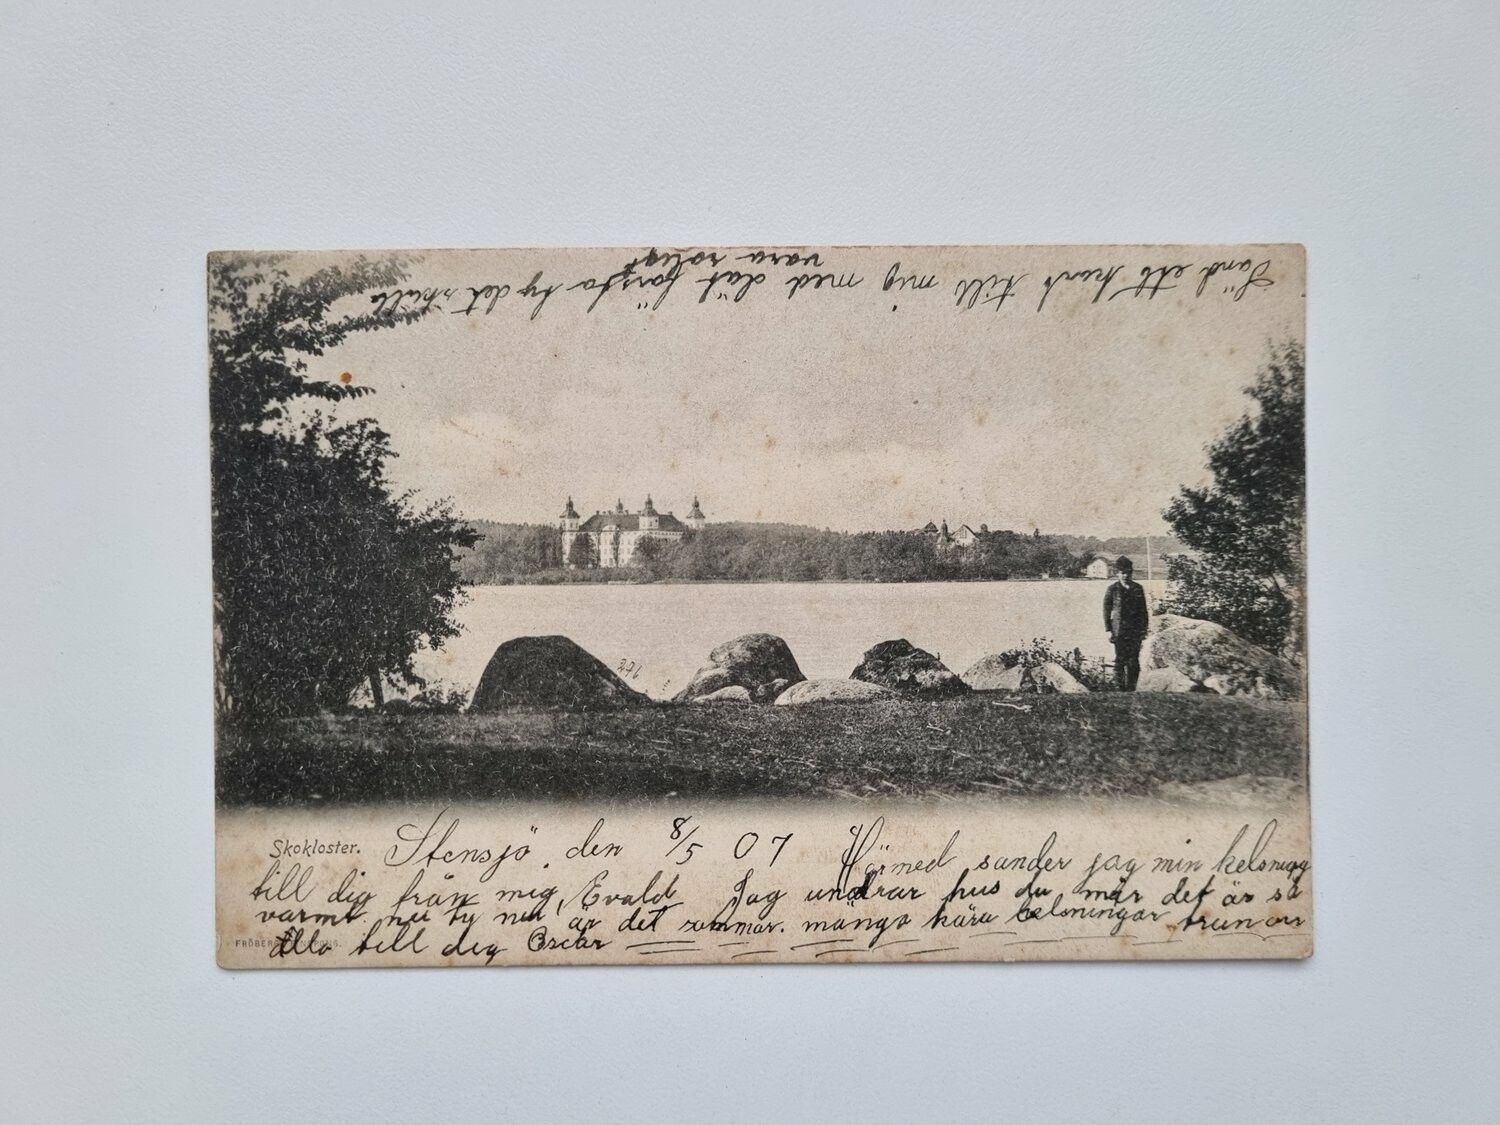 Sänd ett kort till mig med dät första ty det skall
vara roligt
226
Skokloster. Stensjö, den 8/5 07 Härmed sander jag min helsning
till dig från mig, Evald Jag undrar hus du mår det är så
varmt nu ty nu är det sommar. mänga kära helsningar från oss
alla till dig Oscar
FRÖBERG